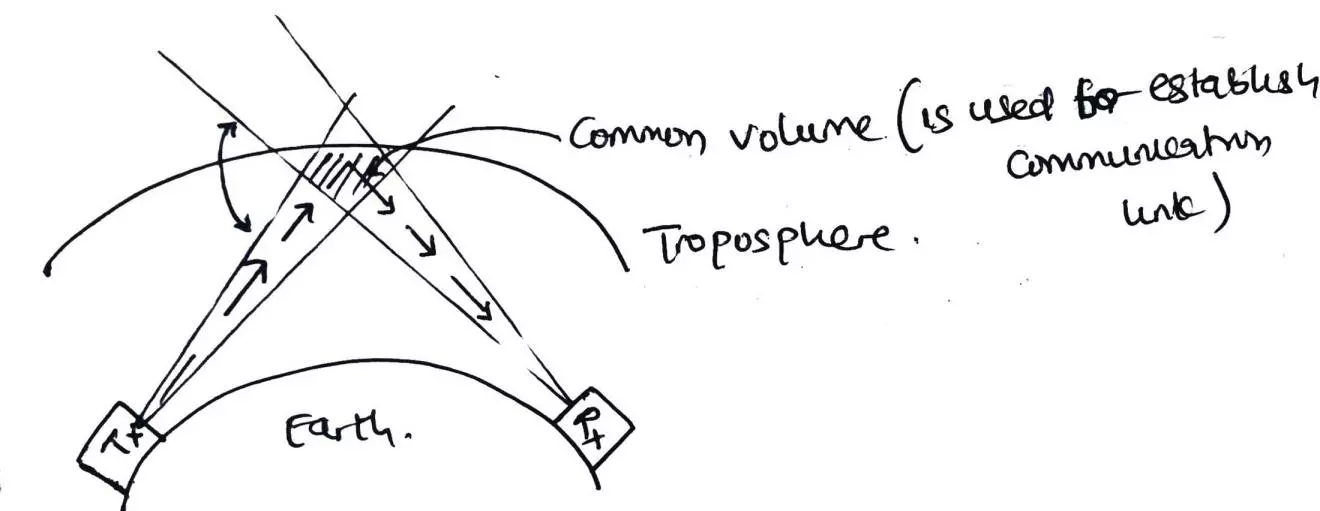 Common volume (is used for establish
communication
link)
Troposphere.
Earth.
Tx
Rx